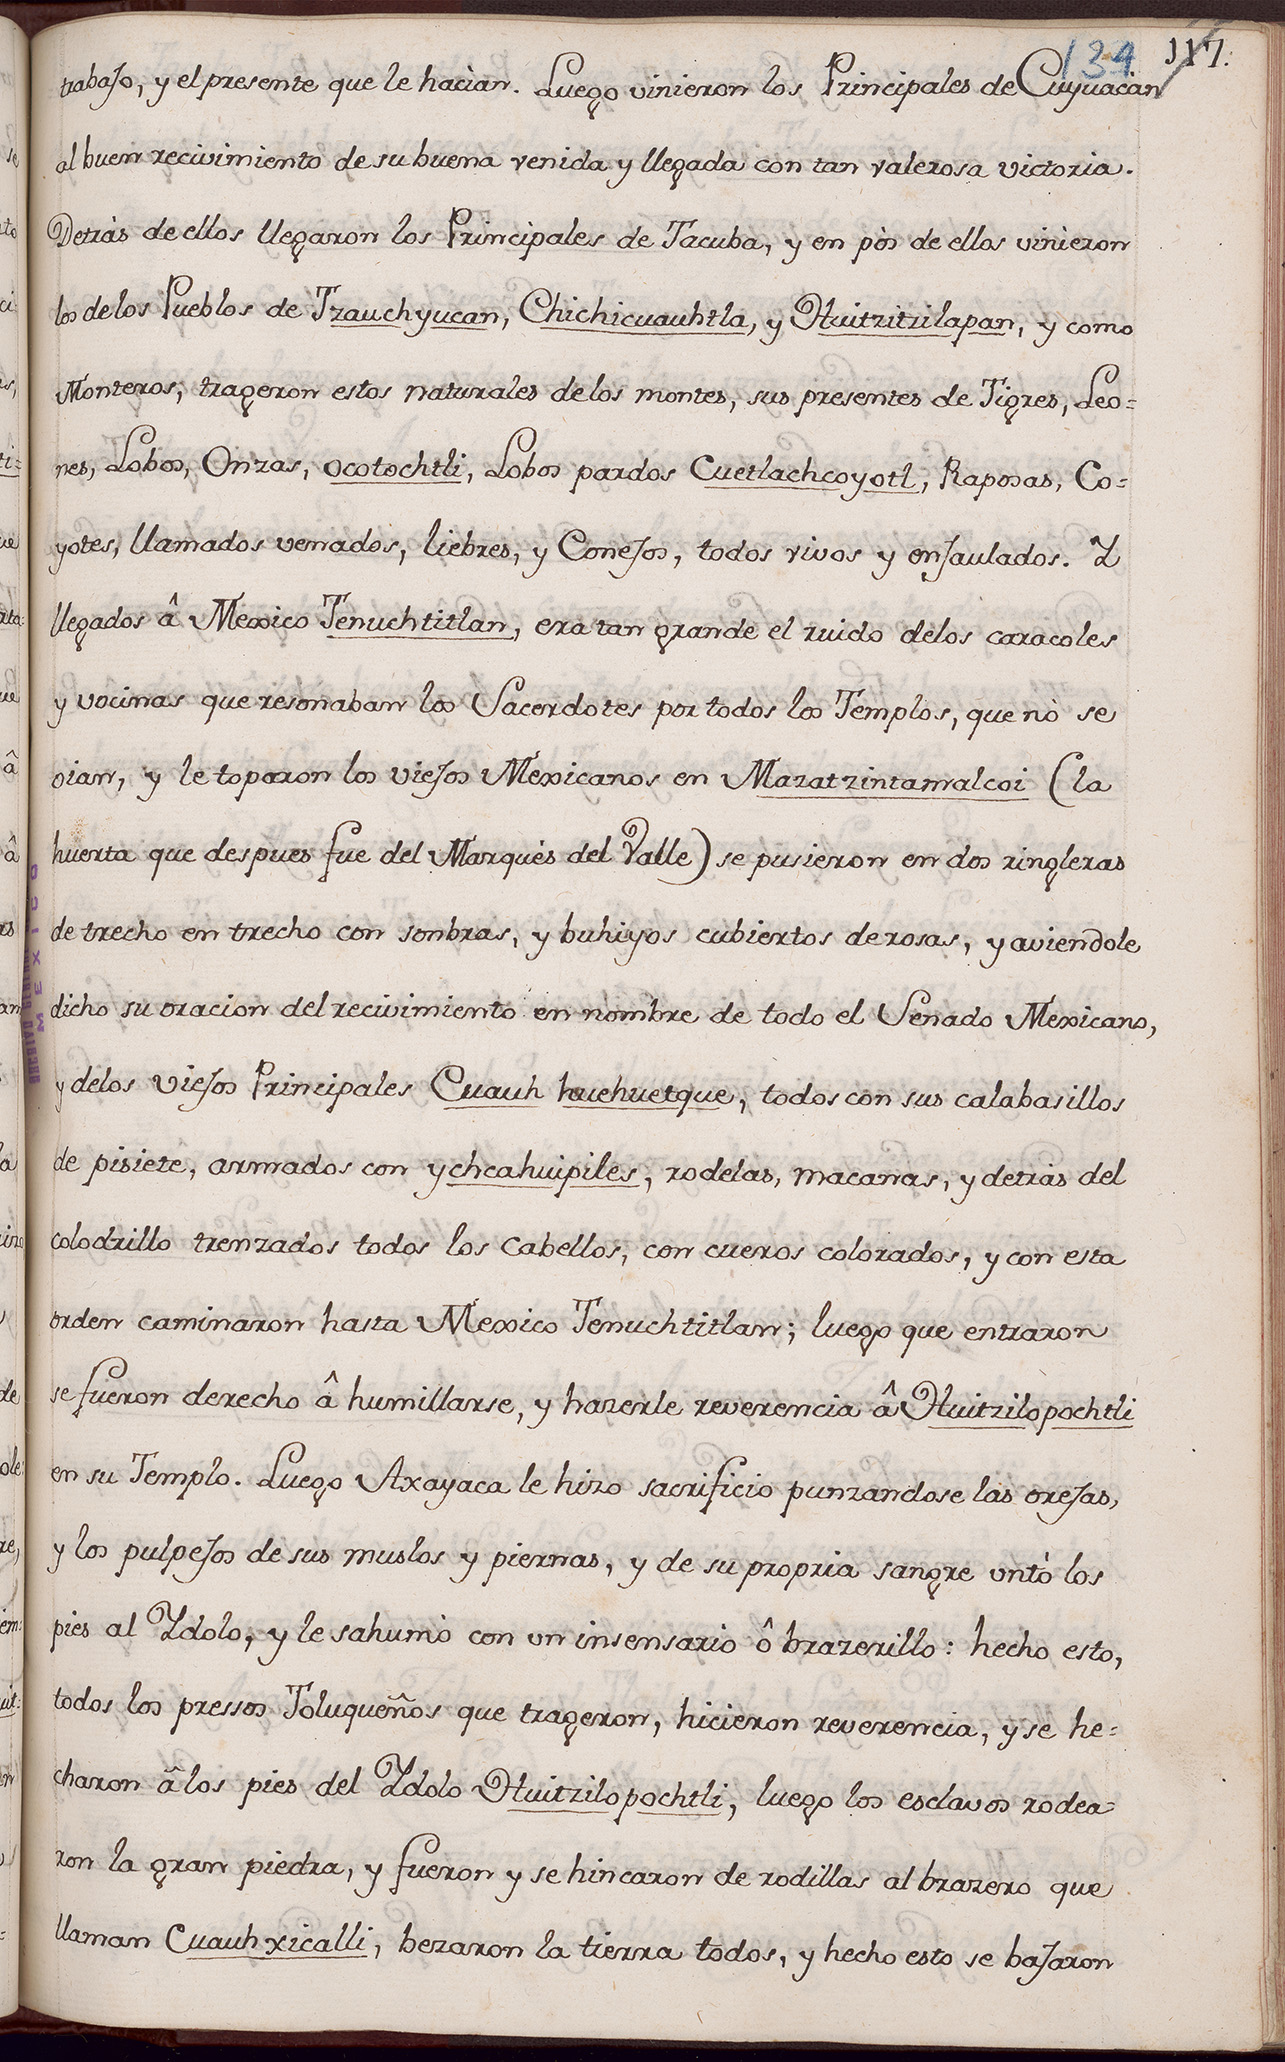 134 117.
trabajo, y el presente que le hacian. Luego vinieron los Principales de Cuyuacàn
al buen recivimiento de su buena venida y llegada con tan valerosa victoria.
Detràs de ellos llegaron los Principales de Tacuba, y en pòs de ellos vinieron
los de los Pueblos de Tzauchyucan, Chichicuauhtla, y Huitzitzilapan, y como
Monteros, trageron estos naturales delos montes, sus presentes de Tigres, Leo=
nes, Lobos, Onzas, ocotochtli, Lobos pardos Cuetlachcoyotl, Raposas, Co=
yotes, llamados venados, liebres, y Conejos, todos vivos y enjaulados. Y
llegados â Mexico Tenuchtitlan, era tan grande el ruido delos caracoles
y vocinas que resonaban los Sacerdotes por todos los Templos, que nò se
oian, y le toparon los viejos Mexicanos en Mazatzintamalcoi (la
huerta que despues fue del Marquès del Valle) se pusieron en dos ringleras
de trecho en trecho con sombras, y buhiyos cubiertos de rosas, y aviendole
dicho su oracion del recivimiento en nombre de todo el Senado Mexicano,
y delos viejos Principales Cuauh huehuetque, todos con sus calabasillos
de pisiete, armados con ychcahuipiles, rodelas, macanas, y detràs del
colodrillo trenzados todos los cabellos, con cueros colorados, y con esta
orden caminaron hasta Mexico Tenuchtitlan; luego que entraron
se fueron derecho â humillarse, y hazerle reverencia â Huitzilopochtli
en su Templo. Luego Axayaca le hizo sacrificio punzandose las orejas,
y los pulpejos de sus muslos y piernas, y de su propria sangre untò los
pies al Ydolo, y le sahumò con un insensario ô brazerillo: hecho esto,
todos los pressos Toluqueños que trageron, hicieron reverencia, y se he=
charon â los pies del Ydolo Huitzilopochtli, luego los esclavos rodea=
ron la gran piedra, y fueron y se hincaron de rodillas al brazero que
llaman Cuauhxicalli, bezaron la tierra todos, y hecho esto se bajaron
MEXICO